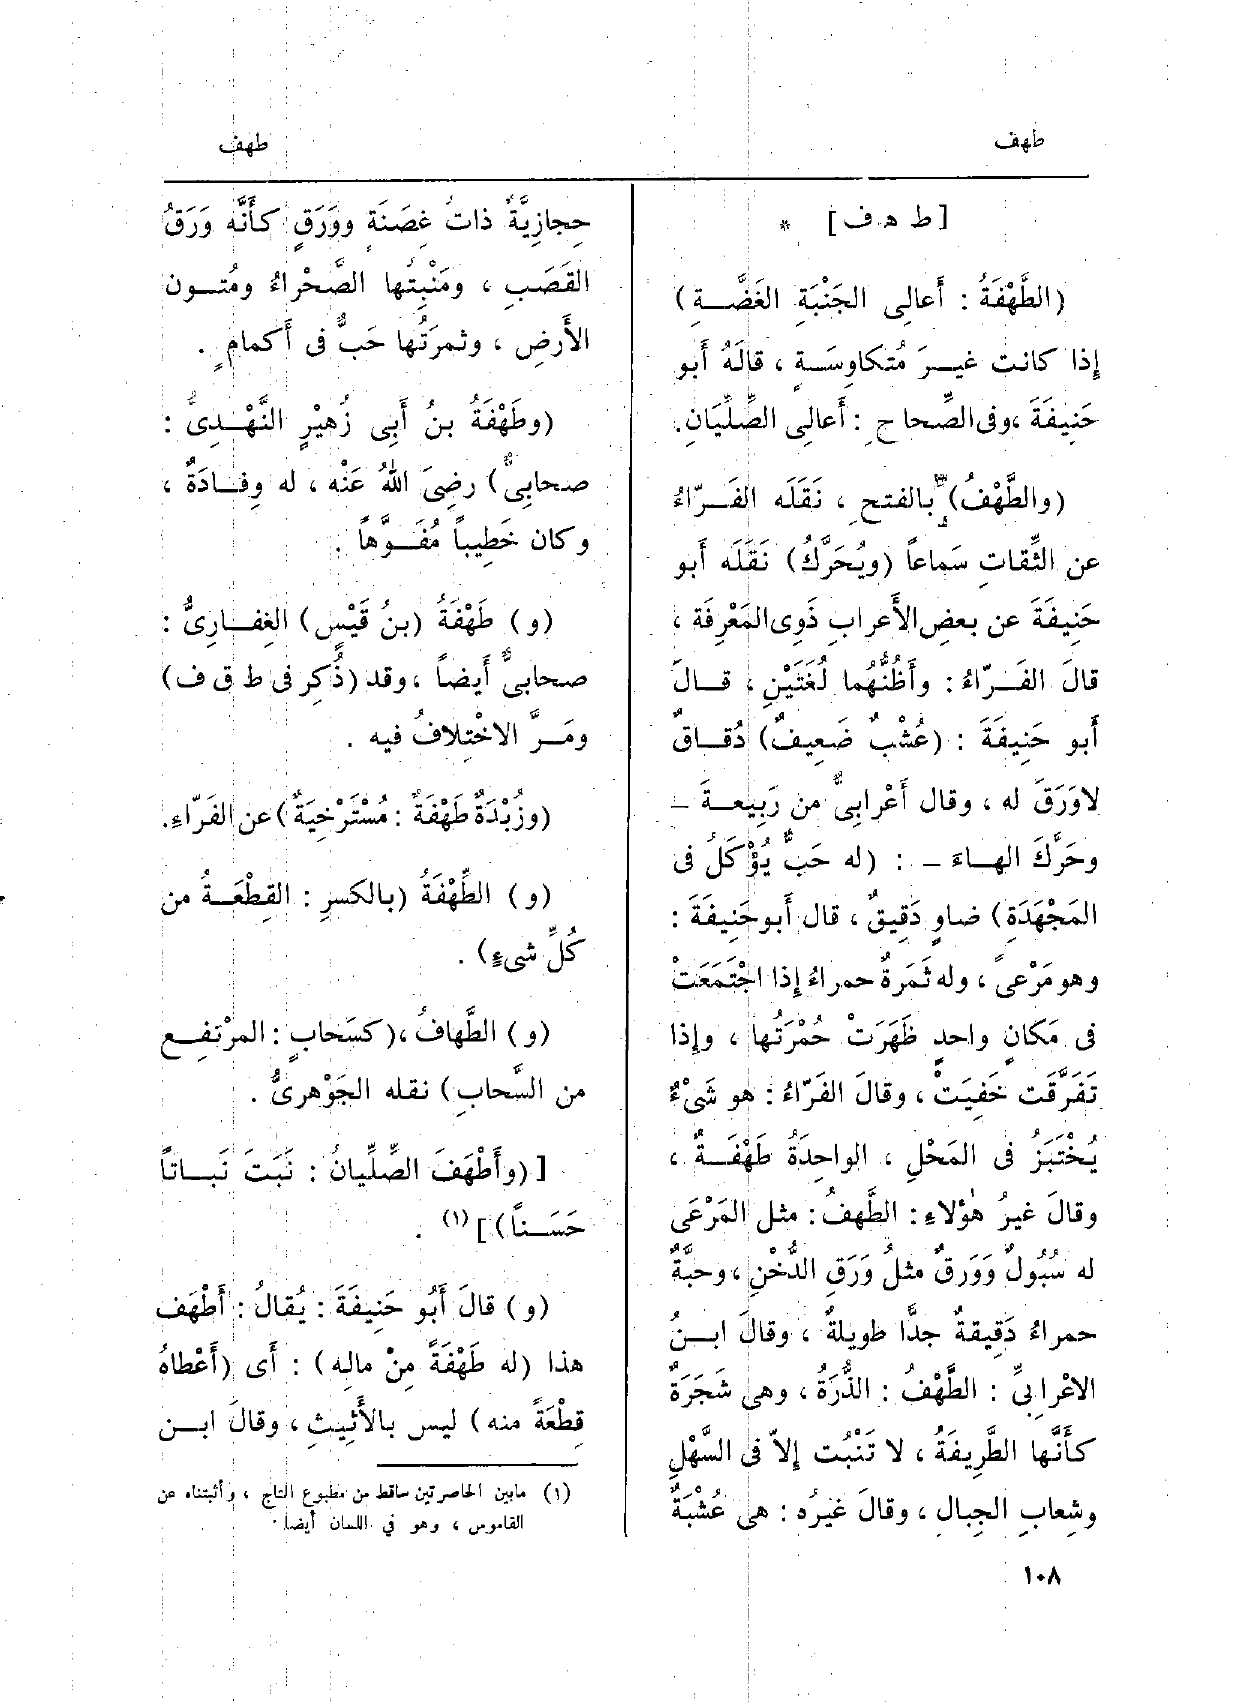 طهف
طهف
[ ط ه ف ] *
(الطَّهْفَةُ : أَعالِى الجَنْبَةِ الغَضَّـــةِ)
إِذا كانت غيــرَ مُتَكاوِسَــةٍ ، قالَهُ أَبو
حَنِيفَةَ ،وفى الصِّحاحِ : أَعالِى الصِّلِّيَانِ.
(والطَّهْفُ) بالفتحِ ، نَقَلَه الفَــرّاءُ
عن الثِّقاتِ سَماعاً (ويُحَرَّكُ) نَقَلَه أَبو
حَنِيفَةَ عن بعضِ الأَعرابِ ذَوِى المَعْرِفَة ،
قالَ الفَــرّاءُ : وأَظُنُّهُما لُغَتَيْنِ ، قــالَ
أَبو حَنِيفَةَ : (عُشْبٌ ضَعِيفٌ) دُقــاقٌ
لاوَرَقَ له ، وقال أَعْرابِىٌّ من رَبِيعــةَ –
وحَرَّكَ الهــاءَ – : (له حَبٌّ يُؤْكَلُ فى
المَجْهَدَةِ) ضاوٍ دَقِيقٌ ، قال أَبوحَنِيفَةَ :
وهو مَرْعىً ، وله ثَمَرَةٌ حمراءُ إِذا اجْتَمَعَتْ
فى مَكانٍ واحدٍ ظَهَرَتْ حُمْرَتُها ، وإِذا
تَفَرَّقَت خَفِيَتْ ، وقالَ الفَرّاءُ : هو شَىْءٌ
يُخْتَبَزُ فى المَحْلِ ، الواحِدَةُ طَهْفَــةٌ ،
وقالَ غيرُ هٰؤلاءِ : الطَّهفُ : مثل المَرْعَى
له سُبُولٌ وَوَرقٌ مثلُ وَرَقِ الدُّخْنِ ،وحبَّةٌ
حمراءُ دَقِيقةٌ جدًّا طويلةٌ ، وقالَ ابــنُ
الاعْرابِىِّ : الطَّهْفُ : الذُّرَةُ ، وهى شَجَرَةٌ
كأَنَّها الطَّرِيفَةُ ، لا تَنْبُت إِلاّ فى السَّهْلِ
وشِعابِ الجِبالِ ، وقالَ غيرُه : هى عُشْبَةٌ
حِجازِيَّةٌ ذاتُ غِصَنَةٍ ووَرَقٍ كأَنَّه وَرَقُ
القَصَبِ ، ومَنْبِتُها الصَّحْراءُ ومُتــون
الأَرضِ ، وثمرَتُها حَبٌّ فى أَكمامٍ .
(وطَهْفَةُ بنُ أَبى زُهَيْرٍ النَّهْــدِىُّ :
صحابِىٌّ) رضِىَ اللهُ عَنْه ، له وِفــادَةٌ ،
وكان خَطِيباً مُفَــوَّهاً .
(و) طَهْفَةُ (بنُ قَيْسٍ) الغِفــارِىُّ :
صحابىٌّ أَيضاً ، وقد (ذُكِر فى ط ق ف)
ومَــرَّ الاخْتِلافُ فيه .
(وزُبْدَةٌ طَهْفَةٌ : مُسْتَرْخِيَةٌ) عن الفَرّاءِ.
(و) الطِّهْفَةُ (بالكسرِ : القِطْعَــةُ من
كُلِّ شىءٍ) .
(و) الطَّهافُ ،(كسَحابٍ : المرْتفِــع
من السَّحابِ) نقله الجَوْهرىُّ .
[ (وأَطْهَفَ الصِّلِّيانُ : نَبَتَ نَبــاتاً
حَسَــناً)] (١) .
(و) قالَ أَبُو حَنِيفَةَ : يُقالُ : أَطْهَف
هذا (له طَهْفَةً مِنْ مالِه) : أَى (أَعْطاهُ
قِطْعَةً منه) ليس بالأَثِيثِ ، وقالَ ابــن
(١) مابين الحاصرتين ساقط من مطبوع التاج ، وأثبتناه عن
القاموس ، وهو في اللسان أيضا .
١٠٨